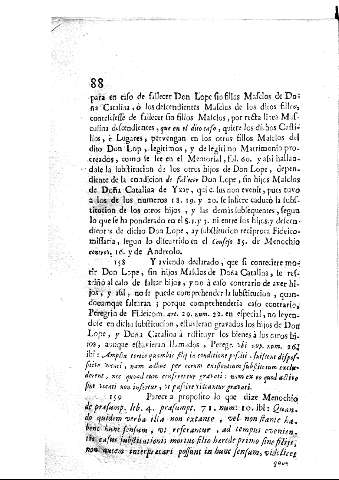 88
para en caso de fallecer Don Lope sin filios Masclos de Do-
ña Catalina, ò los descendientes Masclos de los ditos filios,
contescieße de fallecer sin filios Masclos, por recta linea Mas-
culina descendientes, que en el dito caso, quiere los dichos Casti-
llos, è Lugares, pervengan en los otros filios Masclos del
dito Don Lop, legitimos, y de legitimo Matrimonio pro-
creados, como se lee en el Memorial, fol. 60. y assi hallan-
dose la substitucion de los otros hijos de Don Lope, depen-
diente de la condicion de fallecer Don Lope, sin hijos Masclos
de Doña Catalina de Yxar, quia casus non evenit, pues tuvo
a los de los numeros 18. 19. y 20. se infiere caducò la substi-
titucion de los otros hijos, y las demàs subsequentes, segun
lo que se ha ponderado en el §.1. y 3. ni entre los hijos, y descen-
dientes de dicho Don Lope, ay substitucion reciproca Fideico-
missaria, segun lo discurrido en el Consejo 85. de Menochio
16. y de Andreolo.
158 Y aviendo declarado, que si contecière mo-
rir Don Lope, sin hijos Masclos de Doña Catalina, se res-
triñò al caso de faltar hijos, y no à caso contrario de aver hi-
jos, y assi, no se puede comprehender la substitucion, quan-
documque faltaran; porque comprehenderia caso contrario,
Peregrin de Fideicom. art. 29. num. 22. en especial, no leyen-
dose en dicha substitucion, estuvieran gravados los hijos de Don
Lope, y Doña Catalina à restituir los bienes à los otros hi-
jos, aunque estuvieran llamados, Peregr. ubi sup. num. 26.
ibi: Amplia
159 Parece à proposito lo que dize Menochio
de præsump. lib. 4. præsumpt. 71. num. 10. ibi: Quan-
do quidem verba illa non extante, vel non stante ha-
bent hunc sensum, ut referantur, ad tempus evenien-
tis casus substitutionis mortuo filio herede primo sine filijs,
non autem interpretari possunt in hunc sensum, videlicet
quod